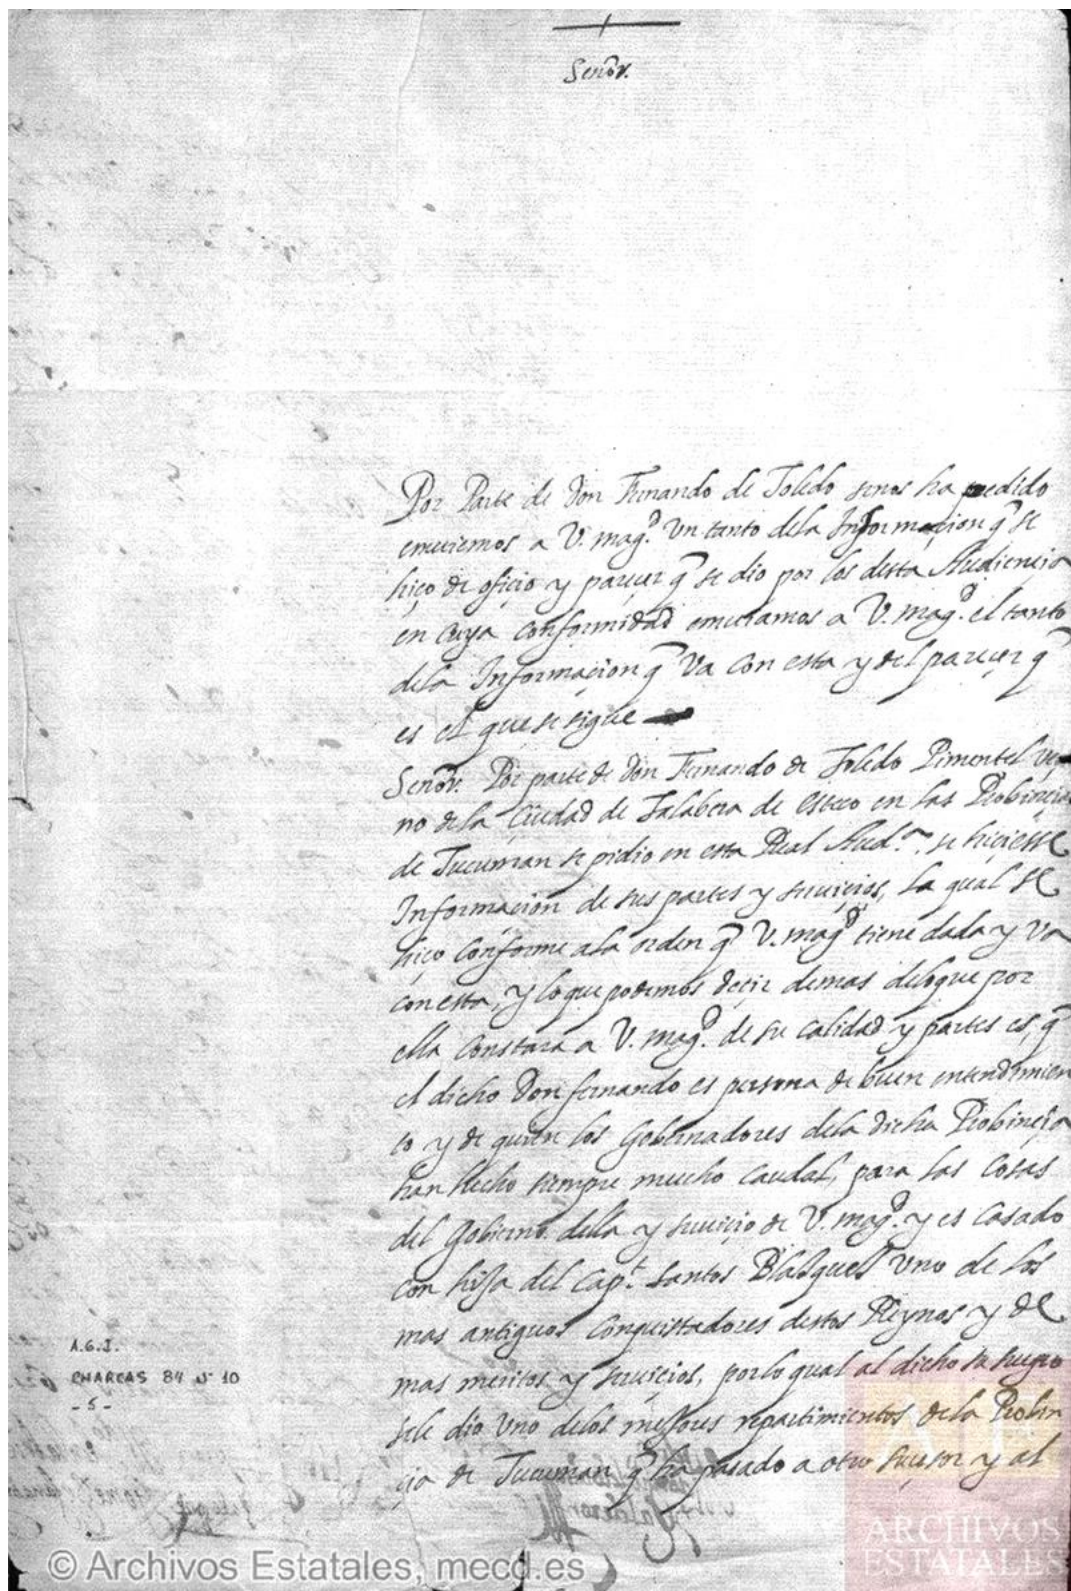 Señor.
Por Parte de Don Fernando de Toledo senos ha pedido
embiemos a V. mag.d Un tanto dela Informaçion q̃ se
hiço de ofiçio y pareçer q̃ se dio por los desta Audiençia
en cuya conformidad embiamos a V. mag.d el tanto
dela Informaçion q̃ Va con esta y del pareçer q̃
es el que se sigue
Señor. Por parte de Don Fernando de Toledo Pimentel veçi
no dela Çiudad de Talabera de esteco en las Probinçias
de Tucuman se pidio en esta Real Aud.a se hiçiesse
Informaçion de sus partes y seruiçios, La qual se
hiço Conforme ala orden q̃ V. mag.d tiene dada y va
con esta, y lo que podemos deçir demas delo que por
ella Constara a V. mag.d de su calidad y partes es, q̃
el dicho Don fernando es persona de buen entendimien
to y de quien los Gobernadores dela dicha Probinçia
han hecho siempre mucho Caudal, para las Cosas
del Gobierno della y seruiçio de V. mag.d y es Casado
con hija del Cap.t Santos Blazquez Vno de los
mas antiguos Conquistadores destos Reynos y de
mas meritos y seruiçios, por lo qual al dicho su suegro
sele dio Vno delos mejores repartimientos dela Probin
çia de Tucuman q̃ ha pasado a otro suçesor y al
A.G.I.
CHARCAS 84 N 10
- 5 -
© Archivos Estatales, mecd.es
AE
ARCHIVOS
ESTATALES